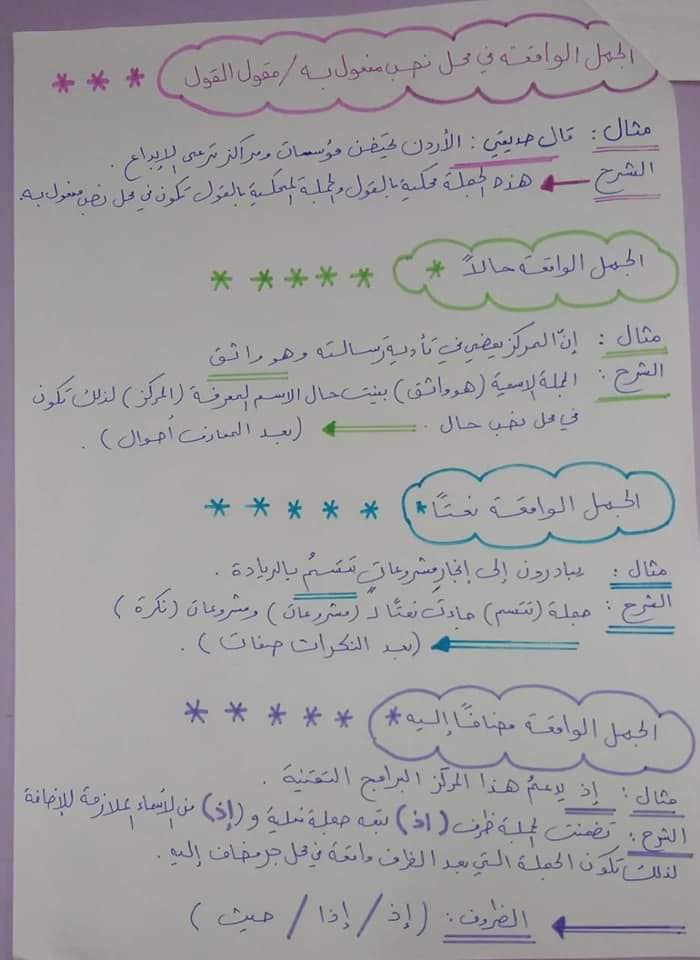 الجمل الواقعة في محل نصب مفعول به / مقول القول
مثال : قال صديقي : الأردن تحتضن مؤسسات ومراكز ترعى الإبداع .
الشرح هذه الجملة محكية بالقول والجملة المحكية بالقول تكون في محل نصب مفعول به.
الجمل الواقعة حالاً
مثال : إنّ المركز يمضي في تأدية رسالته وهو واثق
الشرح : الجملة الاسمية (هو واثق) بينت حال الاسم المعرفة (المركز) لذلك تكون
في محل نصب حال . (بعد المعارف أحوال) .
الجمل الواقعة نعتاً
مثال : يبادرون إلى إنجاز مشروعاتٍ تتسمُ بالريادة .
الشرح : جملة (تتسم) جاءت نعتًا لـ (مشروعات) ومشروعات (نكرة)
(بعد النكرات صفات) .
الجمل الواقعة مضافًا إليه
مثال : إذ يدعمُ هذا المركز البرامج التقنية .
الشرح : تضمنت الجملة ظرف (اذ) تبعه جملة فعلية و (إذ) من الأسماء الملازمة للإضافة
لذلك تكون الجملة التي بعد الظرف واقعة في محل جر مضاف إليه .
الظروف : (إذ / إذا / حيث )